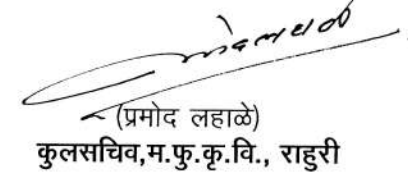 (प्रमोद लहाळे)
कुलसचिव,म.फु.कृ.वि., राहुरी